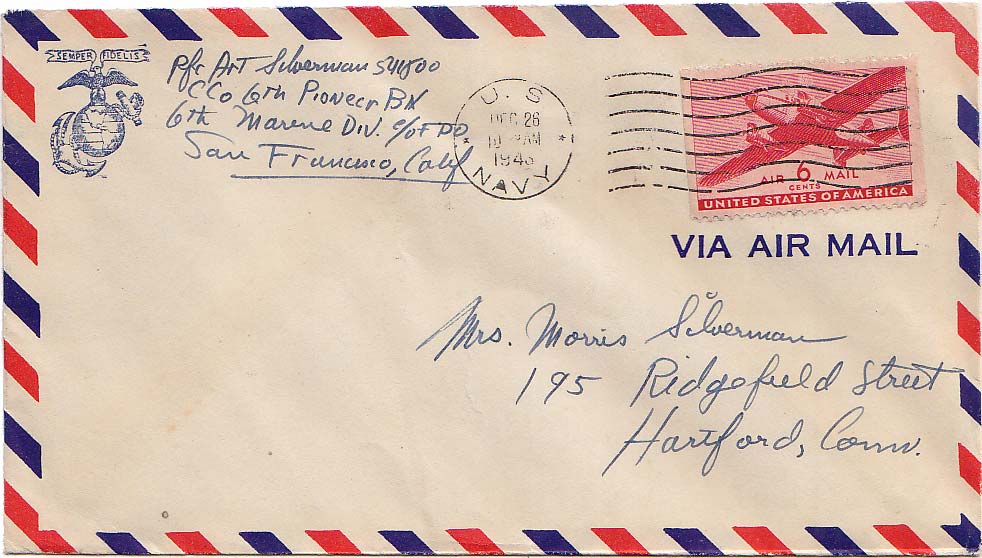 SEMPER FIDELIS
Pfc Art Silverman 541800
C Co 6th Pioneer BN
6th Marine Div. c/o F P O
San Francisco, Calif
U. S.
DEC 26
AM
194
NAVY
AIR 6 MAIL
CENTS
UNITED STATES OF AMERICA
VIA AIR MAIL
Mrs. Morris Silverman
195 Ridgefield Street
Hartford, Conn.